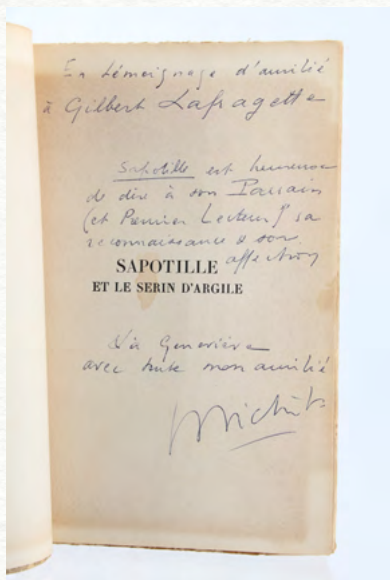 En témoignage d'amitié
à Gilbert Lafragette
Sapotille est heureuse
de dire à son Parrain
(et Premier Lecteur) sa
reconnaissance & son
affection
SAPOTILLE
ET LE SERIN D'ARGILE
à Geneviève
avec toute mon amitié